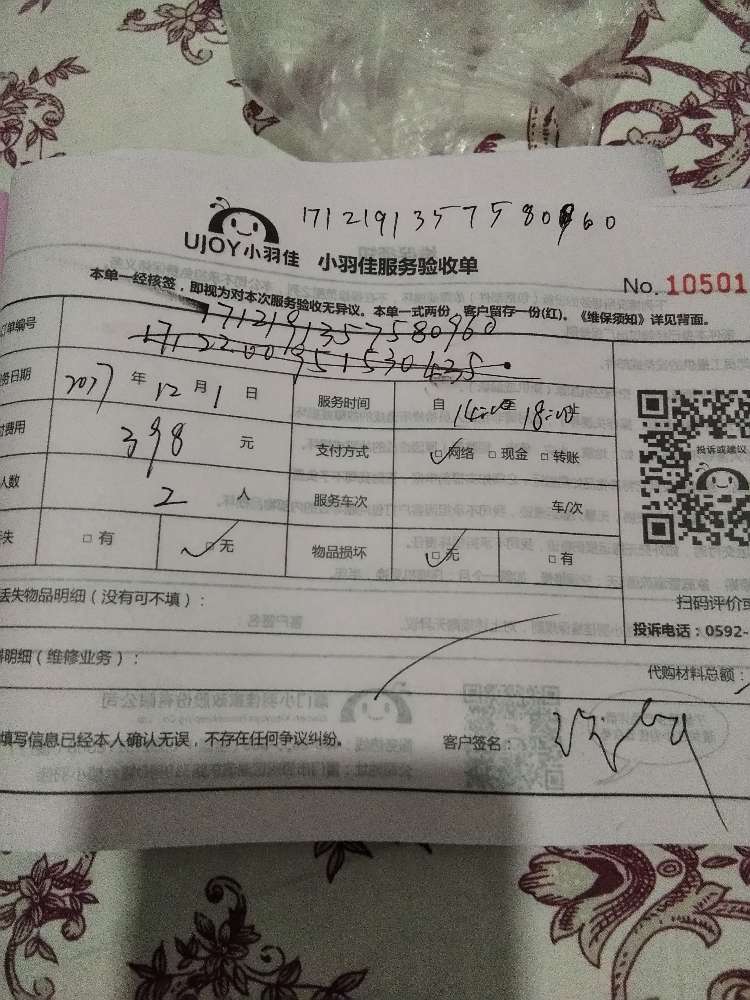 1712191357580860
UJOY小羽佳 小羽佳服务验收单
No. 10501
本单一经核签，即视为对本次服务验收无异议。本单一式两份，客户留存一份(红)。《维保须知》详见背面。
单编号 1712191357580960
171220095153043
务日期 年 12 月 1 日 服务时间 自 14:00至 18:00止
费用 398 元 支付方式 □网络 □现金 □转账
投诉或建议
人数 2 人 服务车次 车/次
失 □有 □无 物品损坏 □无 □有
丢失物品明细（没有可不填）：
扫码评价或
投诉电话：0592-
明细（维修业务）：
代购材料总额：
填写信息已经本人确认无误，不存在任何争议纠纷。 客户签名：